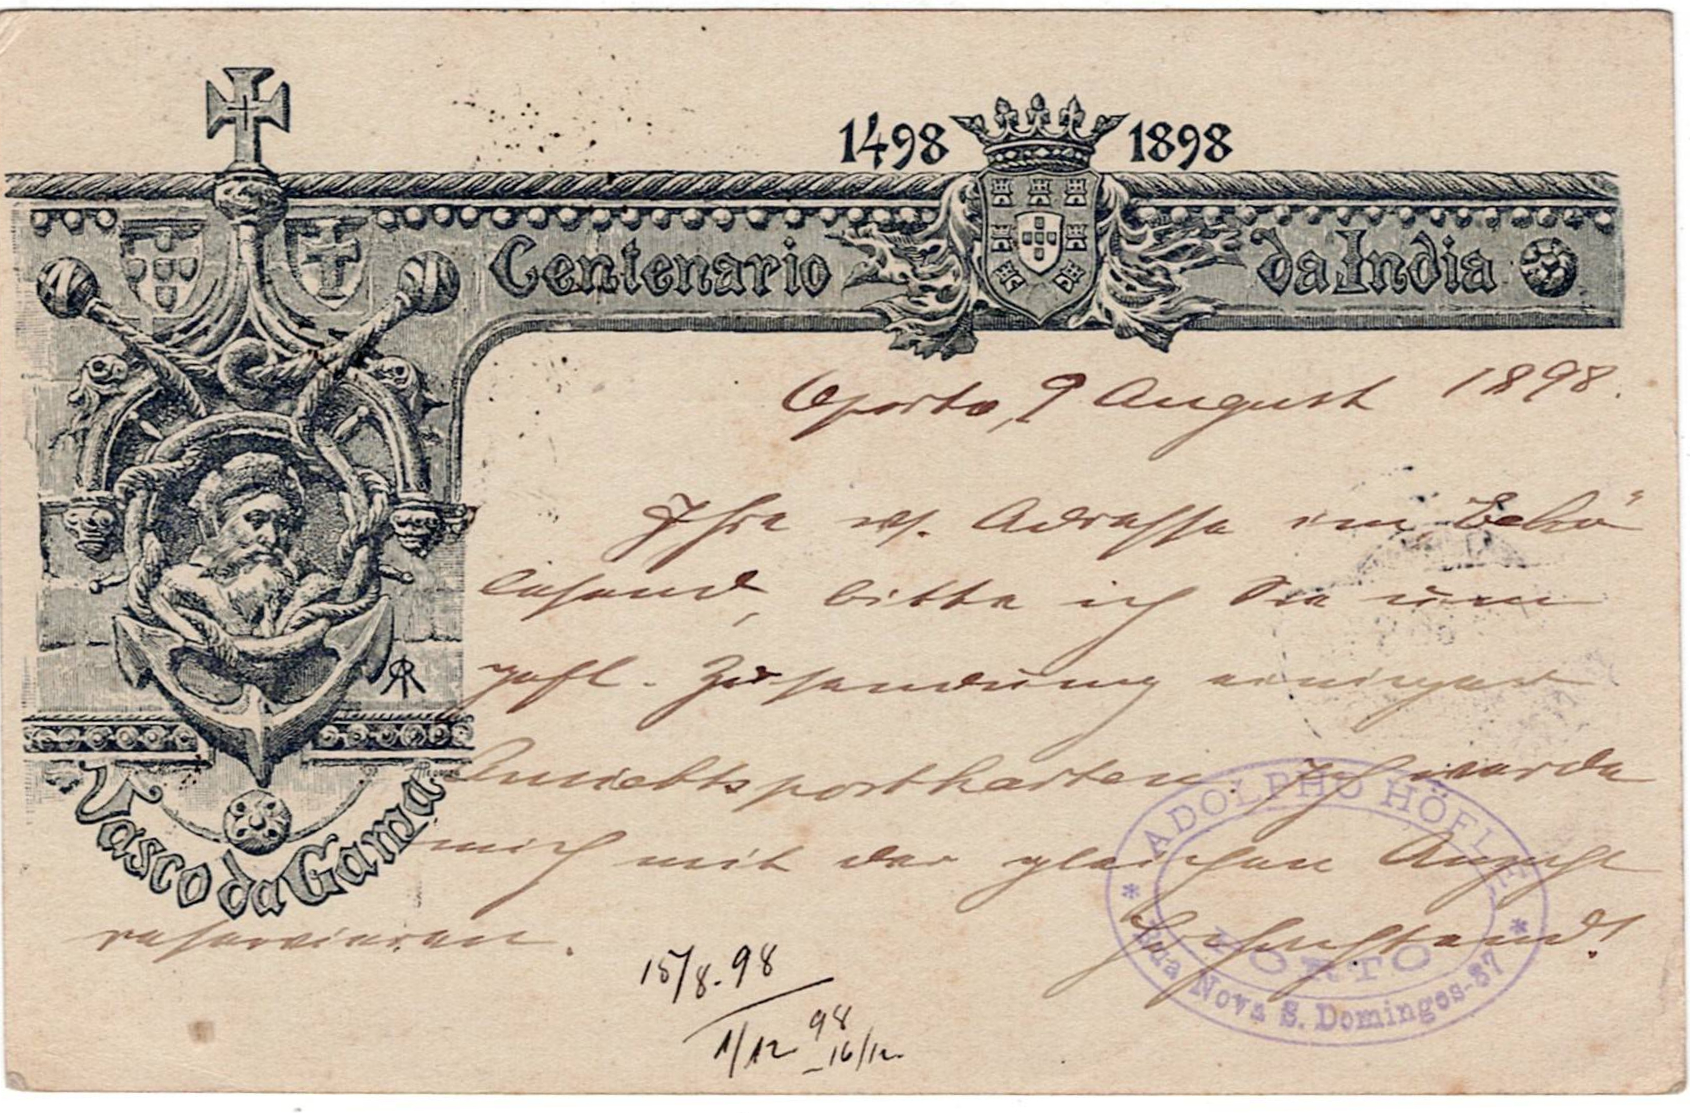 1498 1898
Centenario da India
Vasco da Gama
Oporto, 9 August 1898.
Ihre w. Adresse im "Echo"
lesend, bitte ich Sie um
gefl. Zusendung einiger
Ansichtspostkarten. Ich werde
mich mit der gleichen Anzahl
revanchieren.
Hochachtend!
ADOLPHO HÖFLE
PORTO
Rua Nova S. Domingos-87
15/8.98
1/12 98
16/12